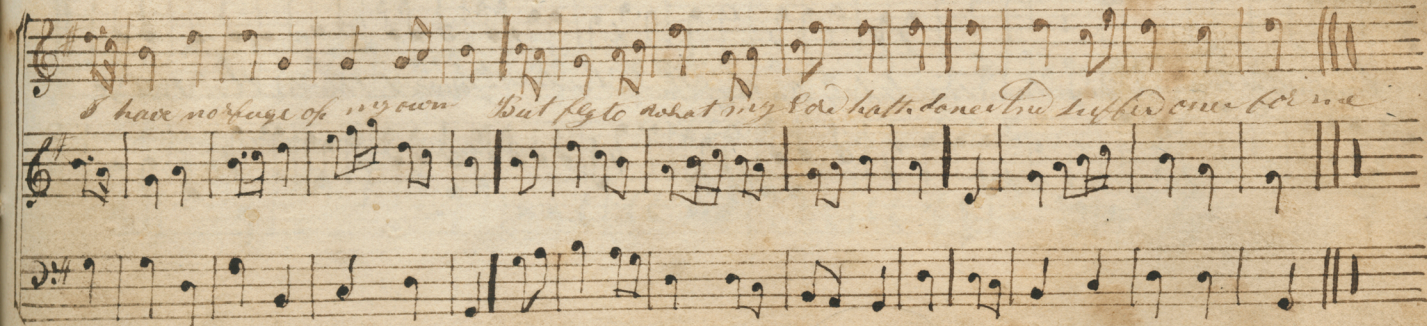 I have no refuge of my own But fly to what my Lord hath done And suffer'd once for me